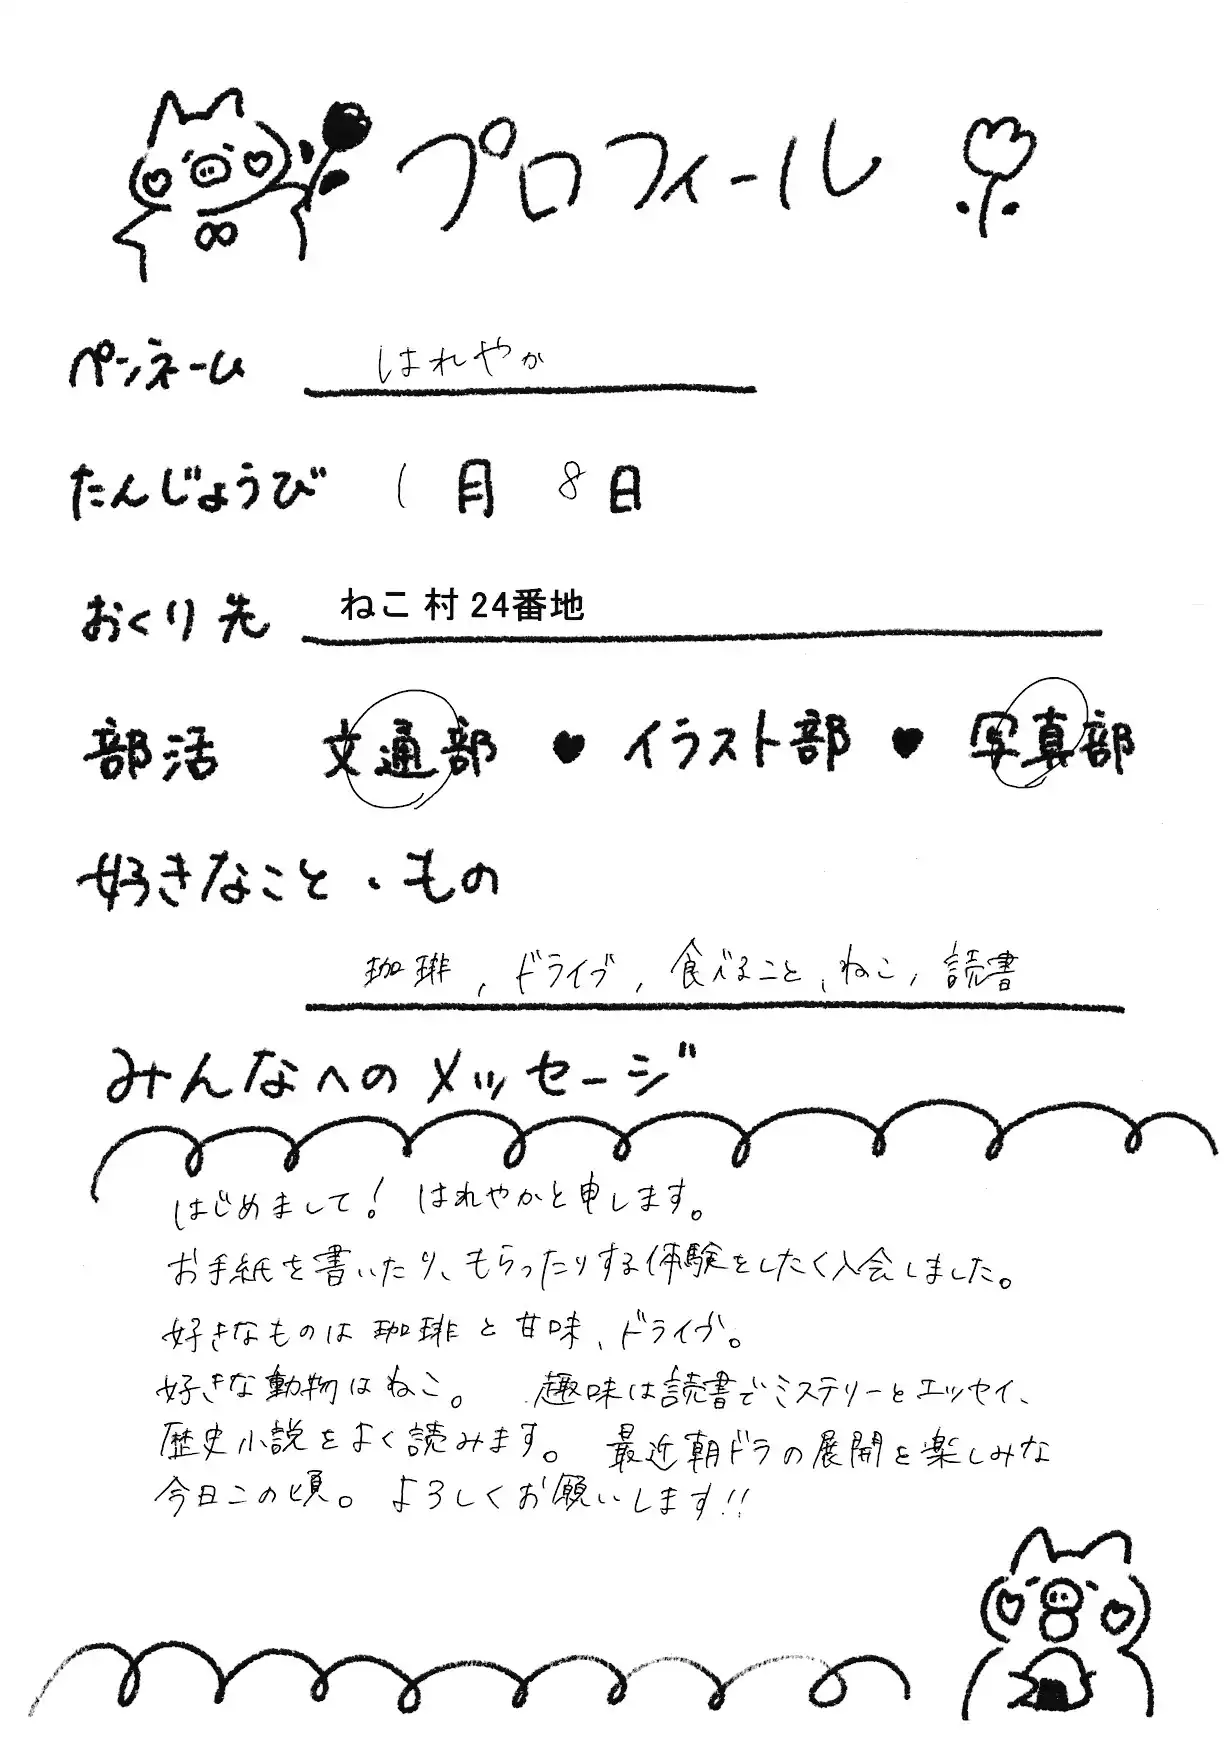 プロフィール
ペンネーム はれやか
たんじょうび 1月 8日
おくり先 ねこ村24番地
部活 文通部 ♥ イラスト部 ♥ 写真部
好きなこと・もの
珈琲、ドライブ、食べること、ねこ、読書
みんなへのメッセージ
はじめまして! はれやかと申します。
お手紙を書いたり、もらったりする体験をしたく入会しました。
好きなものは珈琲と甘味、ドライヴ。
好きな動物はねこ。 趣味は読書でミステリーとエッセイ、
歴史小説をよく読みます。 最近朝ドラの展開を楽しみな
今日この頃。 よろしくお願いします!!